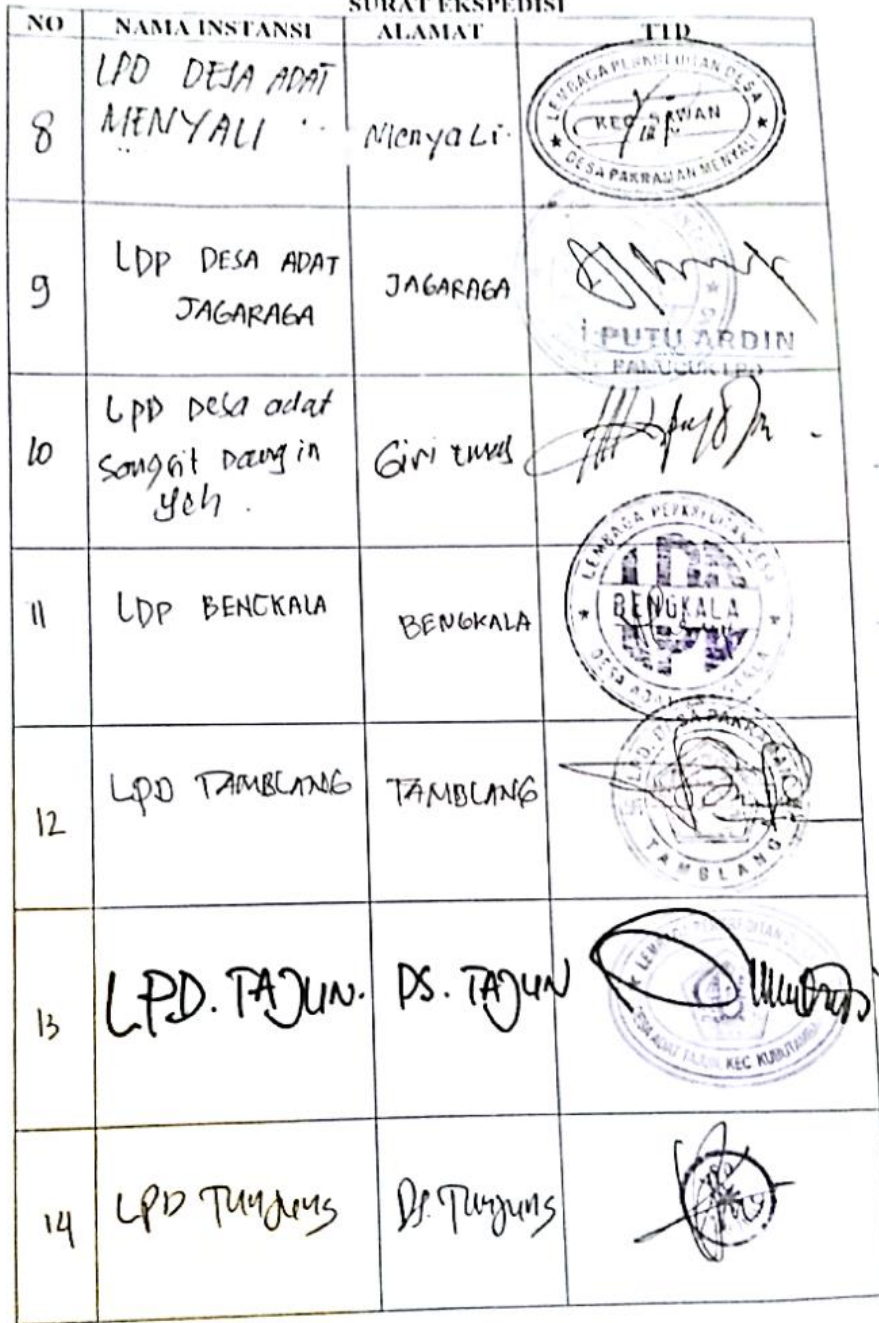 SURAT EKSPEDISI
NO NAMA INSTANSI ALAMAT TTD
8 LPD DESA ADAT
MENYALI Menyali.
LEMBAGA PERKREDITAN DESA
KEC. SAWAN
DESA PAKRAMAN MENYALI
9 LDP DESA ADAT
JAGARAGA JAGARAGA
I PUTU ARDIN
PAMUCUK LPD
10 LPD Desa adat
Sangsit Dangin
Yeh. Giri emas
11 LDP BENGKALA BENGKALA
LEMBAGA PERKREDITAN DESA
BENGKALA
DESA ADAT BENGKALA
12 LPD TAMBLANG TAMBLANG
LPD. DESA PAKRAMAN
TAMBLANG
13 LPD. TAJUN. DS. TAJUN
LEMBAGA PERKREDITAN
DESA ADAT TAJUN, KEC KUBUTAMBA
14 LPD Tunjung Ds. Tunjung